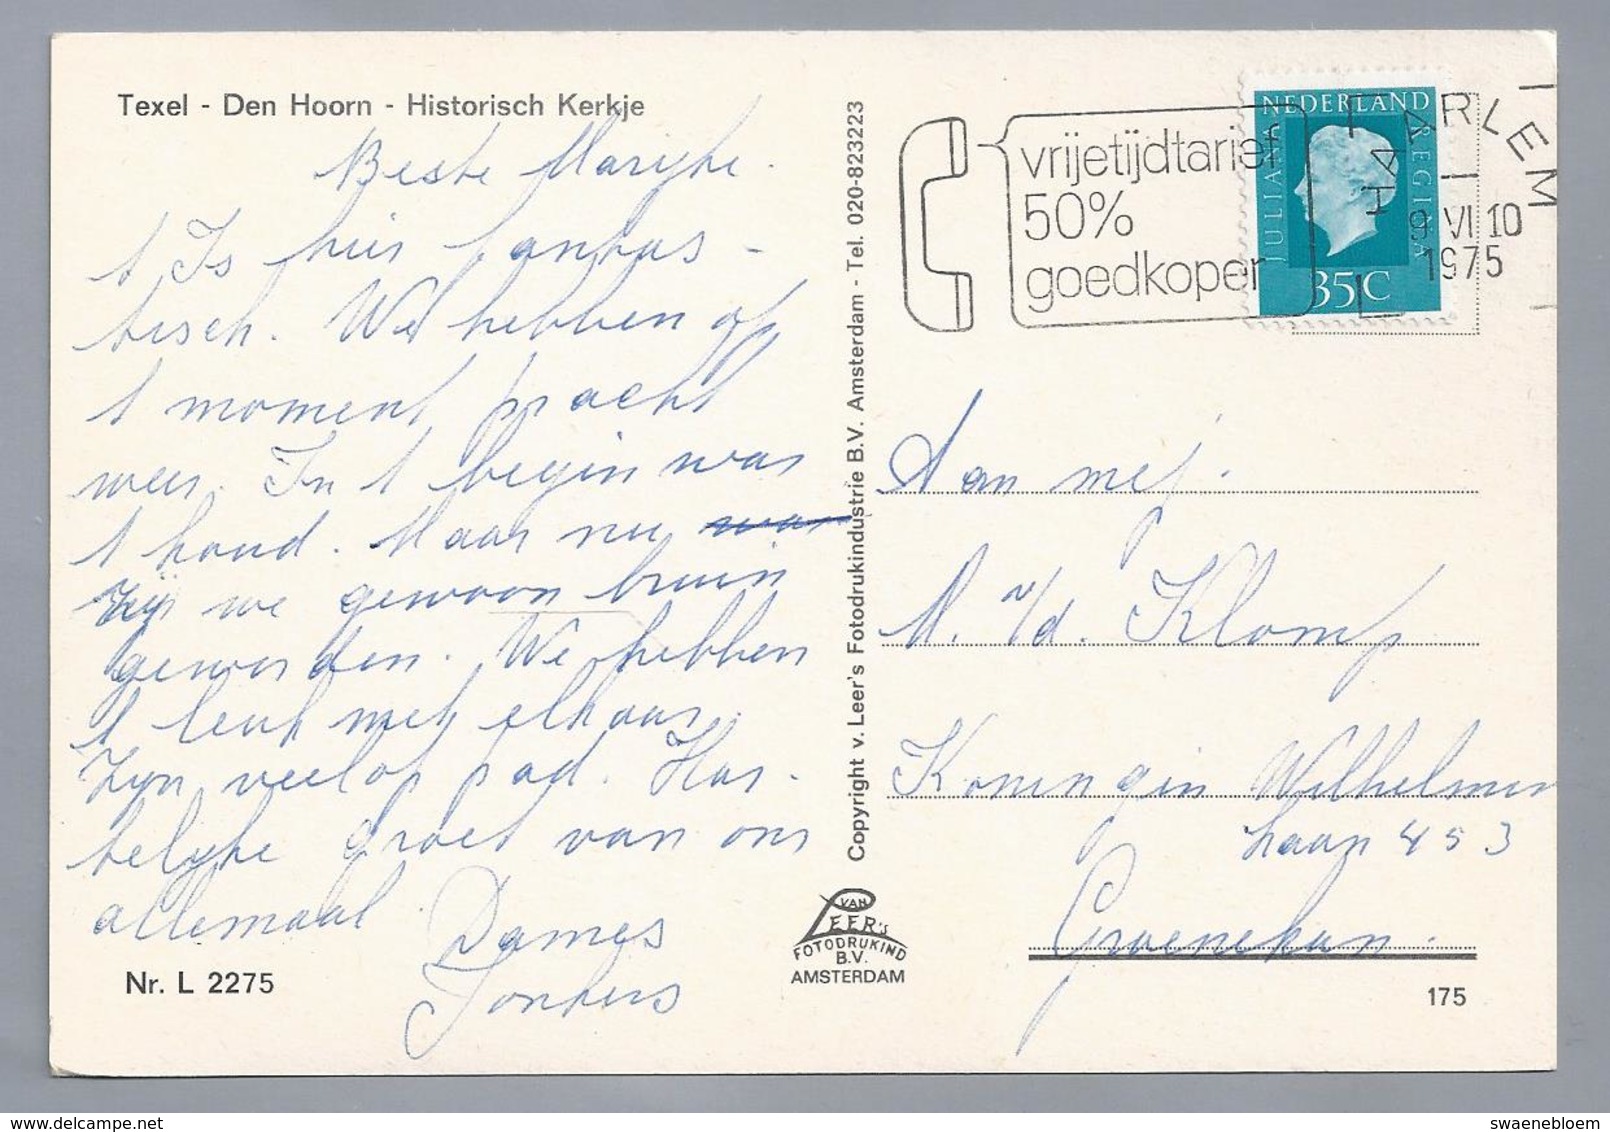 Texel - Den Hoorn - Historisch Kerkje
Beste Marijke.
t Is hier fantas -
tisch. We hebben op
t moment pracht
weer. In t begin was
t koud. Maar nu
zijn we gewoon bruin
geworden. We hebben
t leuk met elkaar.
Zijn veel op pad. Har-
telijke groet van ons
allemaal.
Dames
Jonkers
Nr. L 2275
Copyright v. Leer's Fotodrukindustrie B.V. Amsterdam - Tel. 020-823223
VAN
LEER'S
FOTODRUKIND
B.V.
AMSTERDAM
vrijetijdtarief
50%
goedkoper
NEDERLAND
JULIANA REGINA
35C
HAARLEM
9 VI 10
1975
Aan mej.
M. v/d. Klomp
Koningin Wilhelmin
Laan 453
Groenekan.
175
swaenebloem